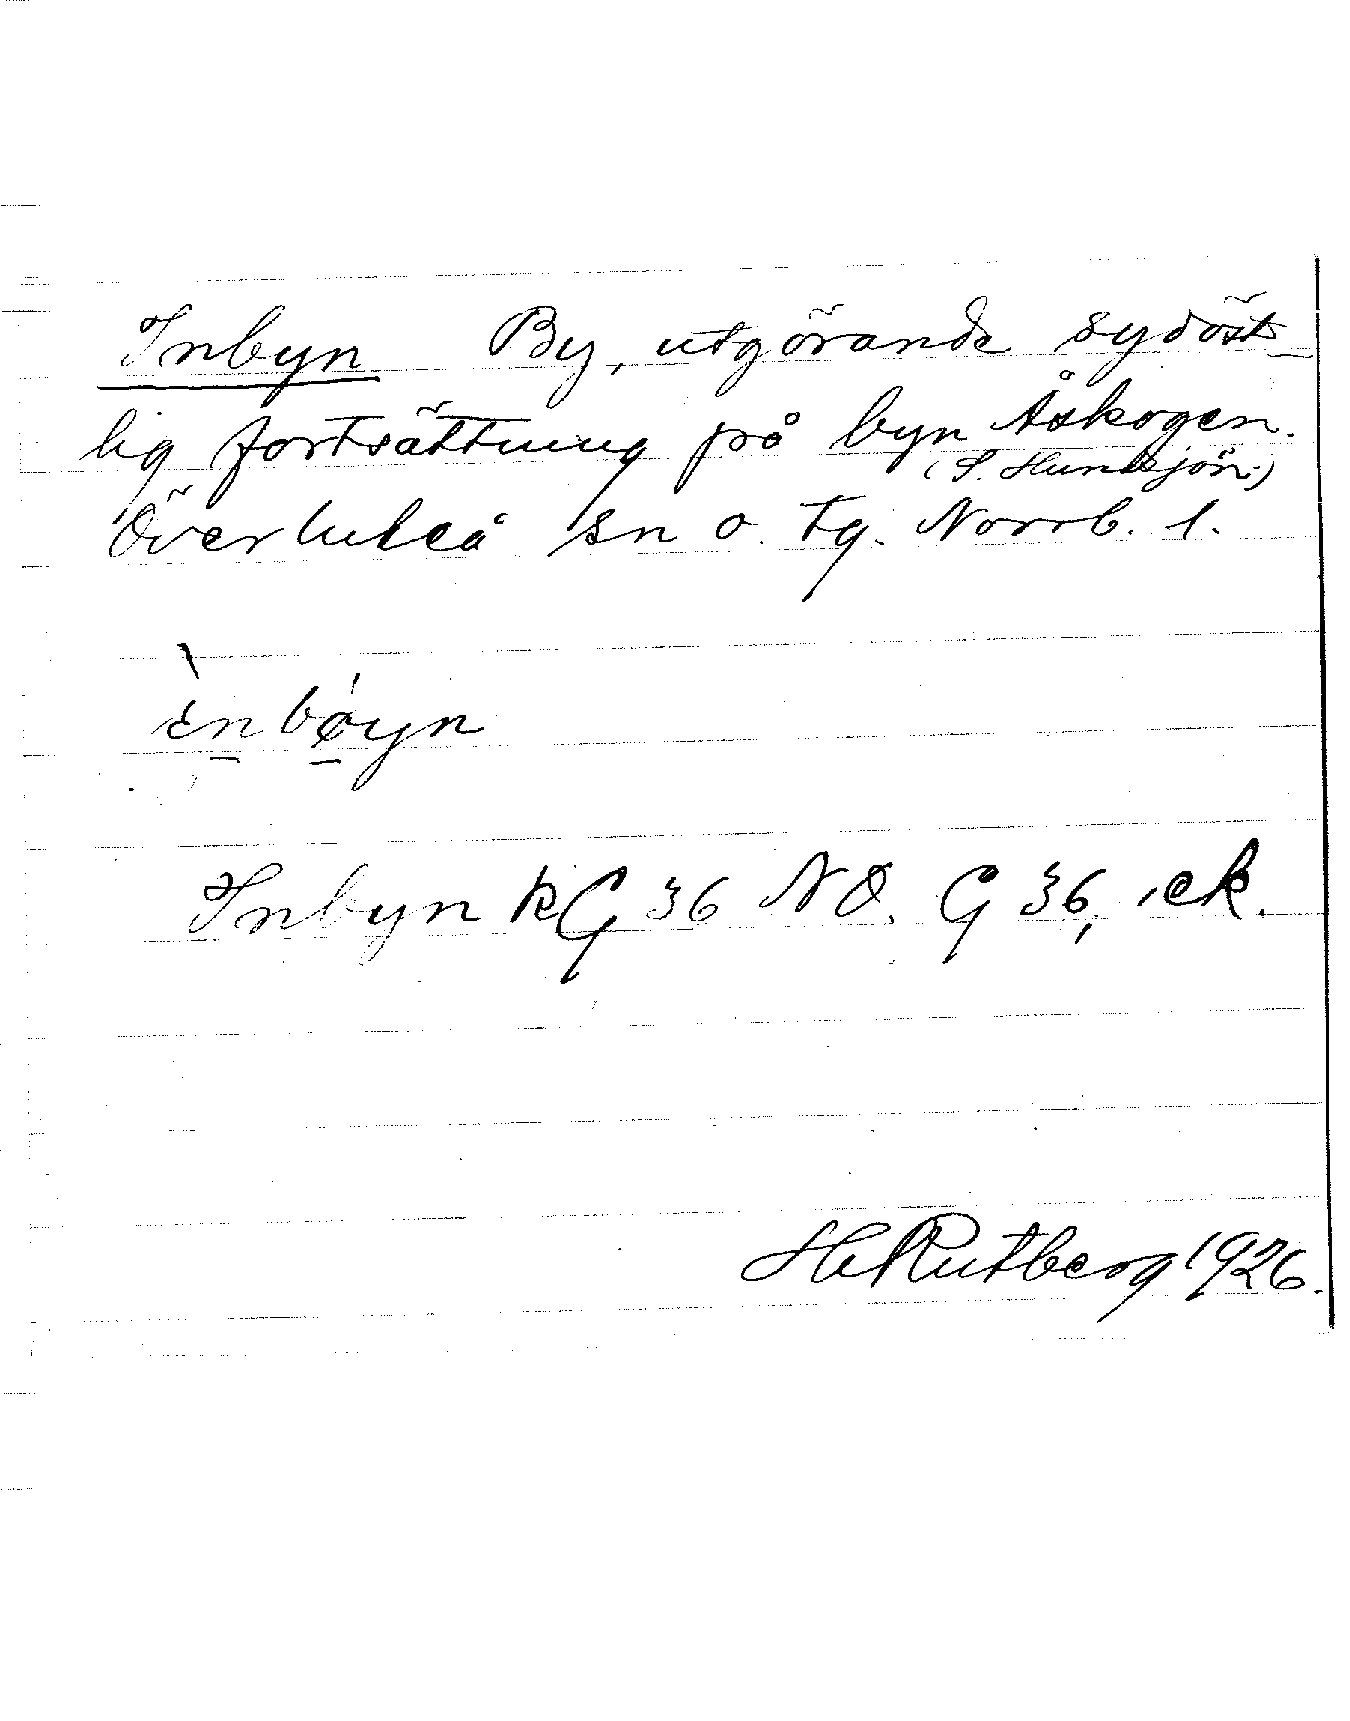 Inbyn By, utgörande sydöst-
lig fortsättning på byn Åskogen.
(S. Hundsjön.)
Överluleå sn o. tg. Norrb. l.
ìnbøyn
Inbyn kG 36 NO. G 36, ek.
H Rutberg 1926.